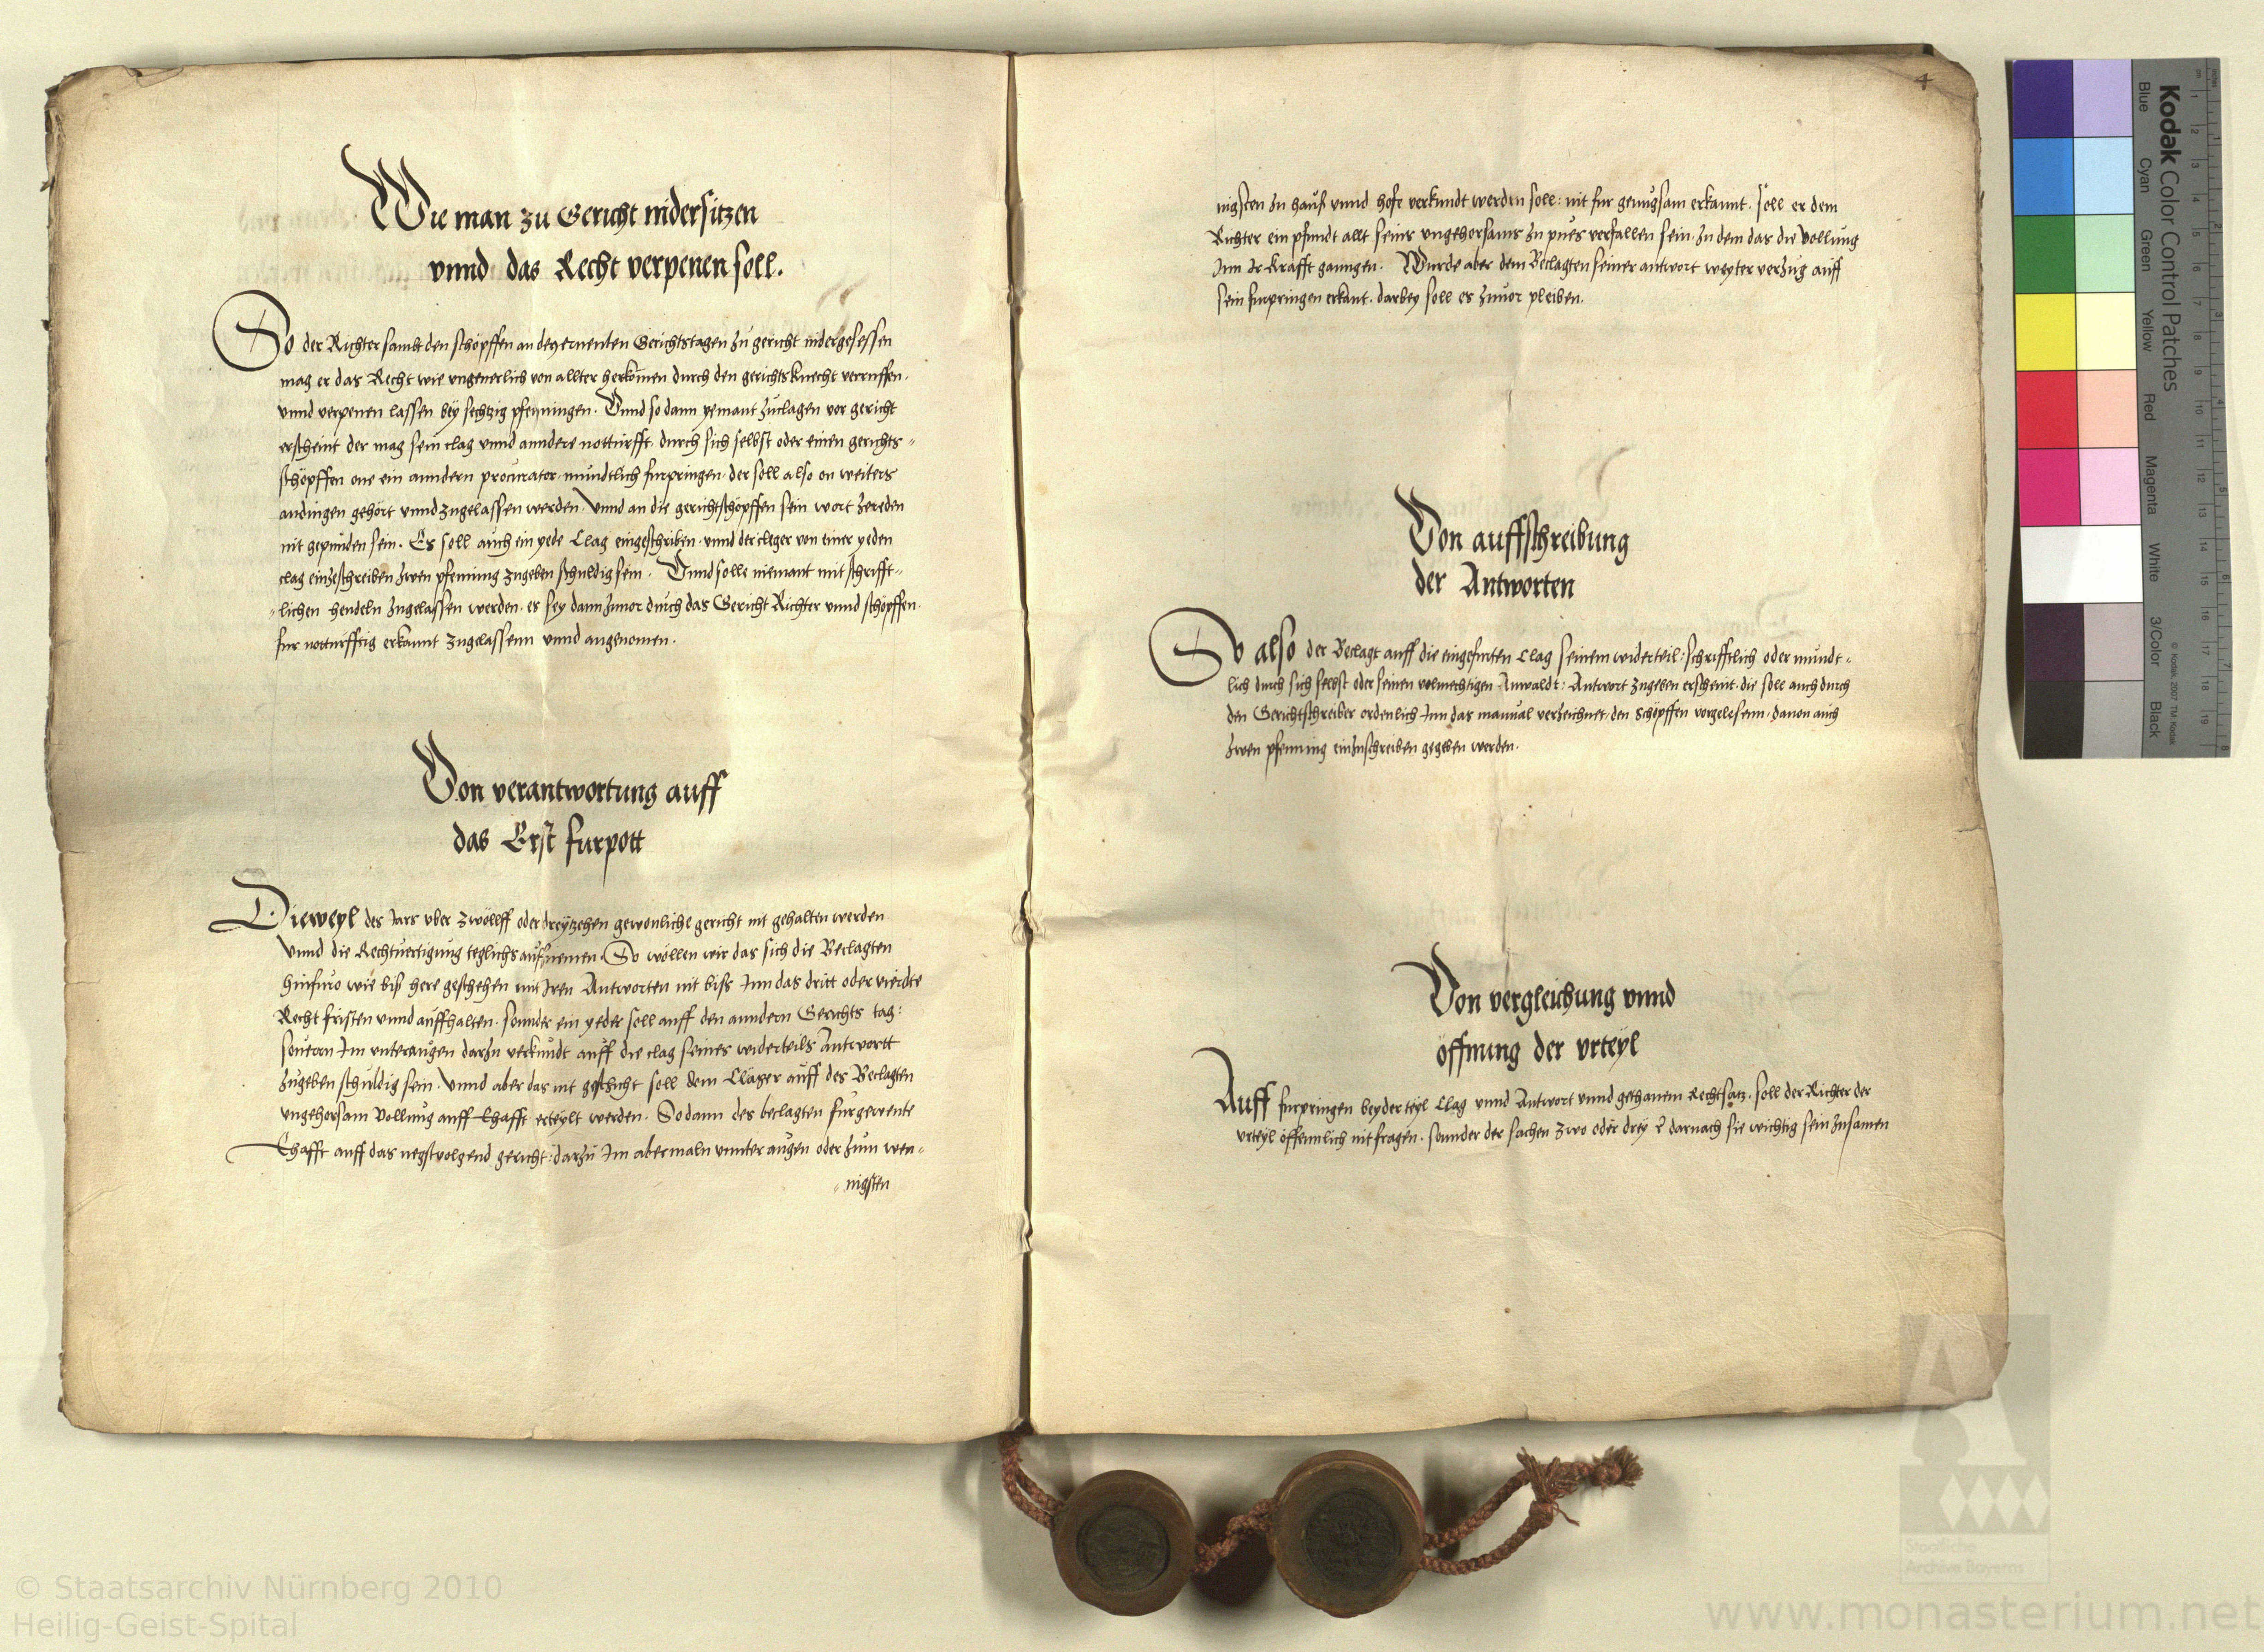 Wie man zu Gericht nidersitzen
vnnd das Recht verpenen soll.
So der Richter sambt den schöpffen an den Gerichtstagen zu gericht nidergesessen
mag er das Recht wie vngeuerlich von allter herkomen durch den gerichtsknecht verruffen.
vnnd verpenen lassen bey sechtzig pfenningen. Vnnd so dann yemant zuclagen vor gericht
erscheint der mag sein clag vnnd anndere notturfft durch sich selbst oder einen gerichts-
schöpffen one ein anndern procurator mundtlich furpringen. der soll also on weiters
andingen gehört vnnd zugelassen werden. Vnnd an die gerichtschöpffen sein wort zereden
nit gepunden sein. Es soll auch ein yede Clag eingeschriben. vnnd der cleger von einer yeden
clag einzeschreiben zwen pfenning zugeben schuldig sein. Vnnd solle niemant mit schrifft-
-lichen hendeln zugelassen werden. es sey dann zuuor durch das Gericht Richter vnnd schöpffen
fur notturfftig erkannt zugelassenn vnnd angenomen.
Von verantwortung auff
das Erst furpott
Dieweyl des Jars vber zwölff oder dreytzehen gewonliche gericht nit gehalten werden
Vnnd die Rechtuertigung teglichs aufnemen. So wöllen wir das sich die Beclagten
hinfuro wie biß here geschehen mit Iren Antworten nit biß Inn das dritt oder vierdte
Recht fristen vnnd auffhalten. sonnder ein yeder soll auff den anndern Gerichts tag:
souern Im vnteraugen darzu verkundt auff die clag seines widerteils Antwortt
zugeben schuldig sein. Vnnd aber das nit geschicht soll dem Clager auff des Beclagten
vngehorsam Vollung auff Ehafft erteylt werden. So dann des beclagten furgewente
Ehafft auff das negstuolgend gericht: darzu Im abermaln vnnter augen oder zum wen-
-nigsten
4
nigsten zu hauß vnnd hofe verkundt werden soll: nit fur genugsam erkannt. soll er dem
Richter ein pfundt allt seins vngehorsams zu pues verfallen sein. zu dem das die Vollung
Inn Ir krafft ganngen. Wurde aber dem Beclagten seiner antwort weyter verzug auff
sein furpringen erkant. darbey soll es zuuor pleiben.
Von auffschreibung
der Antworten
So also der Beclagt auff die eingefurten Clag seinem widerteil: schrifftlich oder mundt-
lich durch sich selbst oder seinen volmechtigen Anwaldt: Antwort zugeben erscheint. die soll auch durch
den Gerichtschreiber ordenlich Inn das manual verzeichnet, den Schöpffen vorgelesenn. dauon auch
zwen pfenning einzuschreiben gegeben werden.
Von vergleichung vnnd
öffnung der vrteyl
Auff furpringen beyder teyl Clag vnnd Antwort vnnd gethanem Rechtsatz. soll der Richter der
vrteyl öffennlich nit fragen. sonnder der sachen zwo oder drey darnach sie wichtig sein zusamen
Kodak Color Control Patches
Blue Cyan Green Yellow Red Magenta White 3/Color Black
© Kodak, 2007 TM: Kodak
Staatliche
Archive Bayerns
© Staatsarchiv Nürnberg 2010
Heilig-Geist-Spital
www.monasterium.net